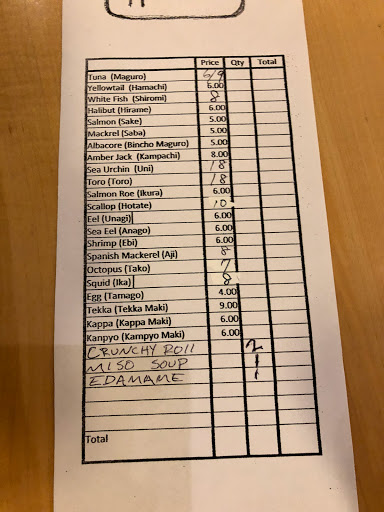 Price Qty Total
Tuna (Maguro) 6/9
Yellowtail (Hamachi) 6.00
White Fish (Shiromi) 8
Halibut (Hirame) 6.00
Salmon (Sake) 5.00
Mackrel (Saba) 5.00
Albacore (Bincho Maguro) 5.00
Amber Jack (Kampachi) 8.00
Sea Urchin (Uni) 18
Toro (Toro) 18
Salmon Roe (Ikura) 6.00
Scallop (Hotate) 10
Eel (Unagi) 6.00
Sea Eel (Anago) 6.00
Shrimp (Ebi) 6.00
Spanish Mackerel (Aji) 8
Octopus (Tako) 7
Squid (Ika) 8
Egg (Tamago) 4.00
Tekka (Tekka Maki) 9.00
Kappa (Kappa Maki) 6.00
Kanpyo (Kampyo Maki) 6.00
CRUNCHY ROLL 2
MISO SOUP 1
EDAMAME 1
Total